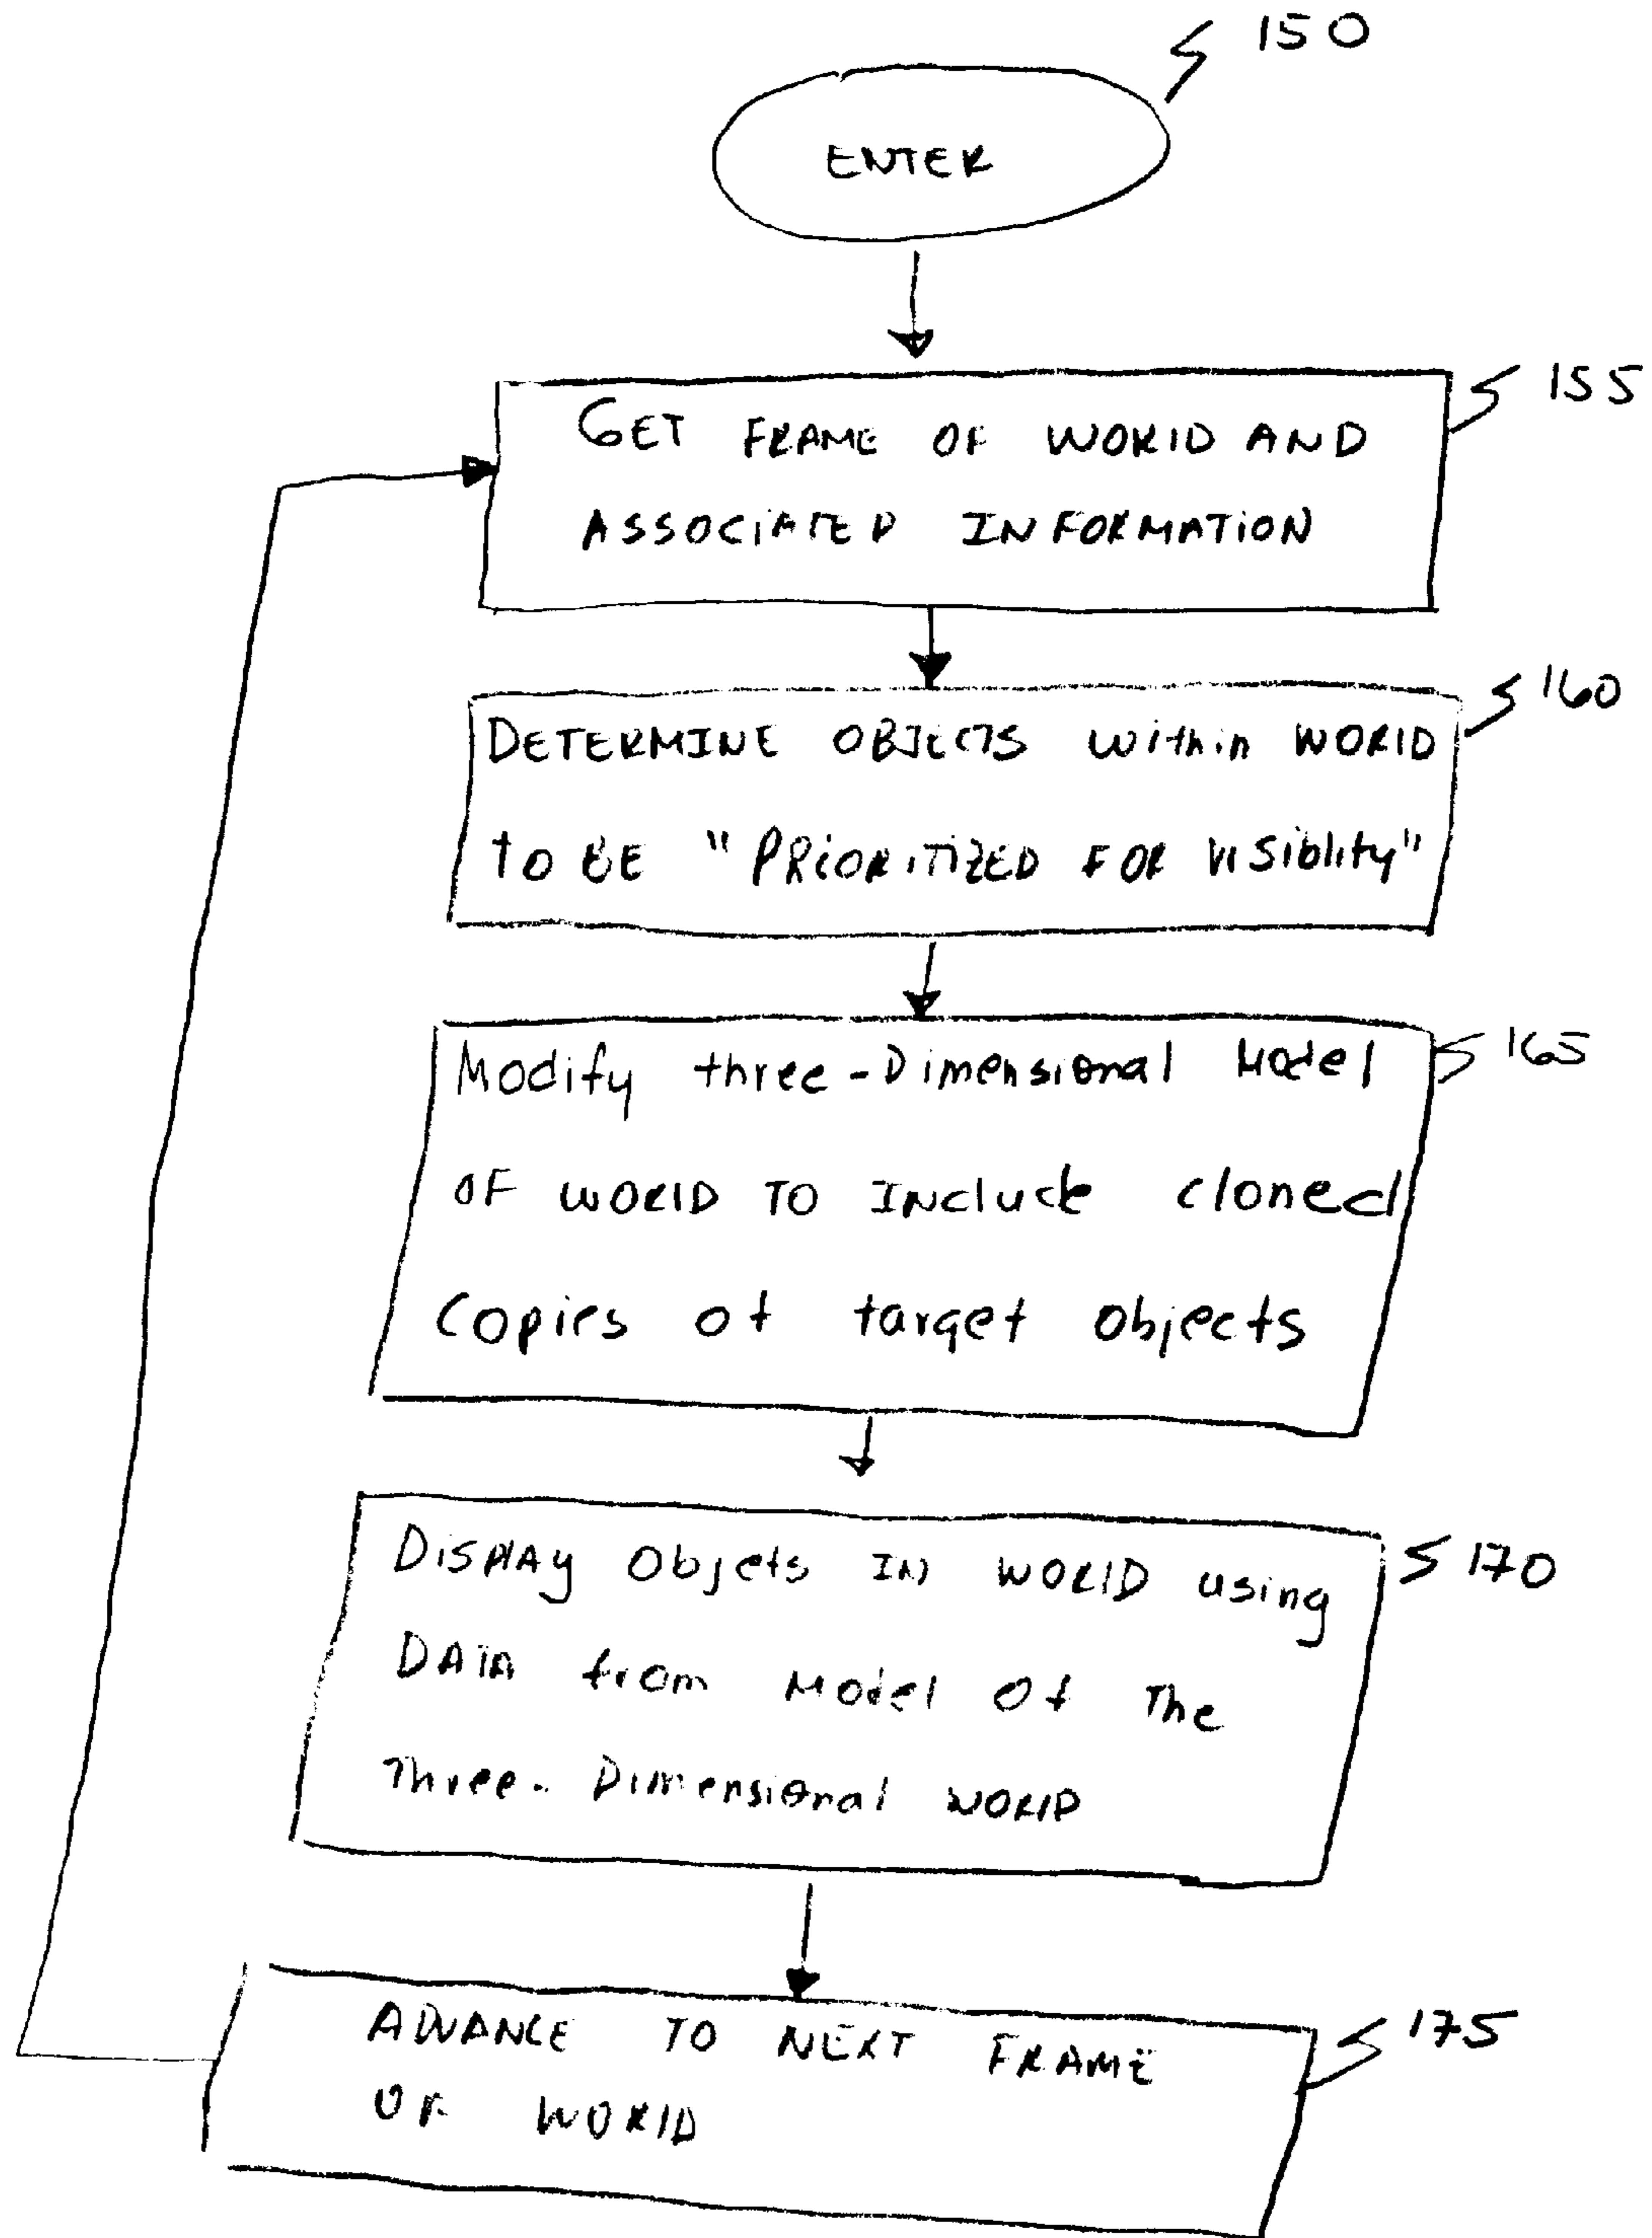 150
ENTER
155
GET FRAME OF WORLD AND
ASSOCIATED INFORMATION
160
DETERMINE OBJECTS within WORLD
to BE "PRIORITIZED FOR Visiblity"
165
Modify three-Dimensional Model
OF WORLD TO INclude cloned
Copies of target Objects
170
DISPLAy Objets IN WORLD using
DATA from Model Of The
Three-Dimensional WORLD
175
ADVANCE TO NEXT FRAME
OF WORLD